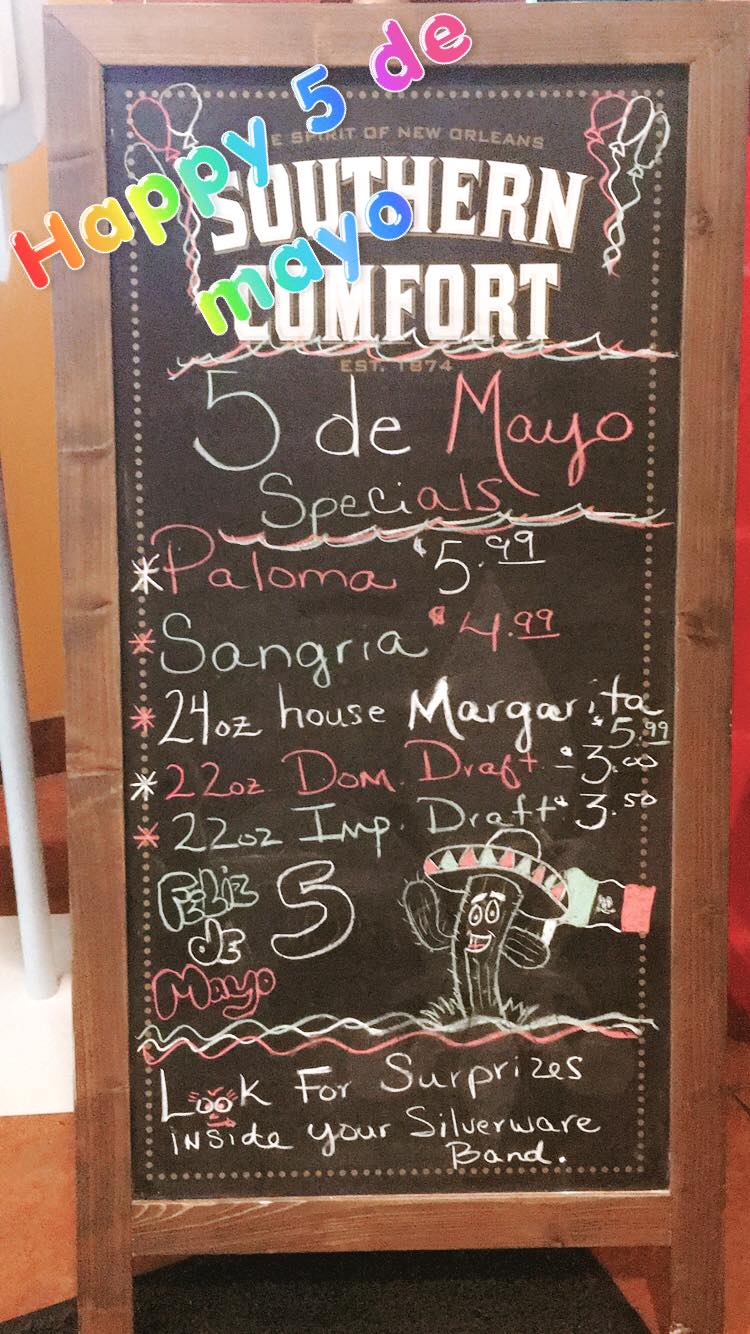 Happy 5 de
mayo
E SPIRIT OF NEW ORLEANS
SOUTHERN
COMFORT
EST. 1874
5 de Mayo
Specials
*Paloma $5.99
*Sangria $4.99
*24oz house Margarita
$5.99
*22oz Dom. Draft - $3.00
*22oz Imp. Draft $3.50
Feliz 5
de
Mayo
Look For Surprizes
inside your Silverware
Band.